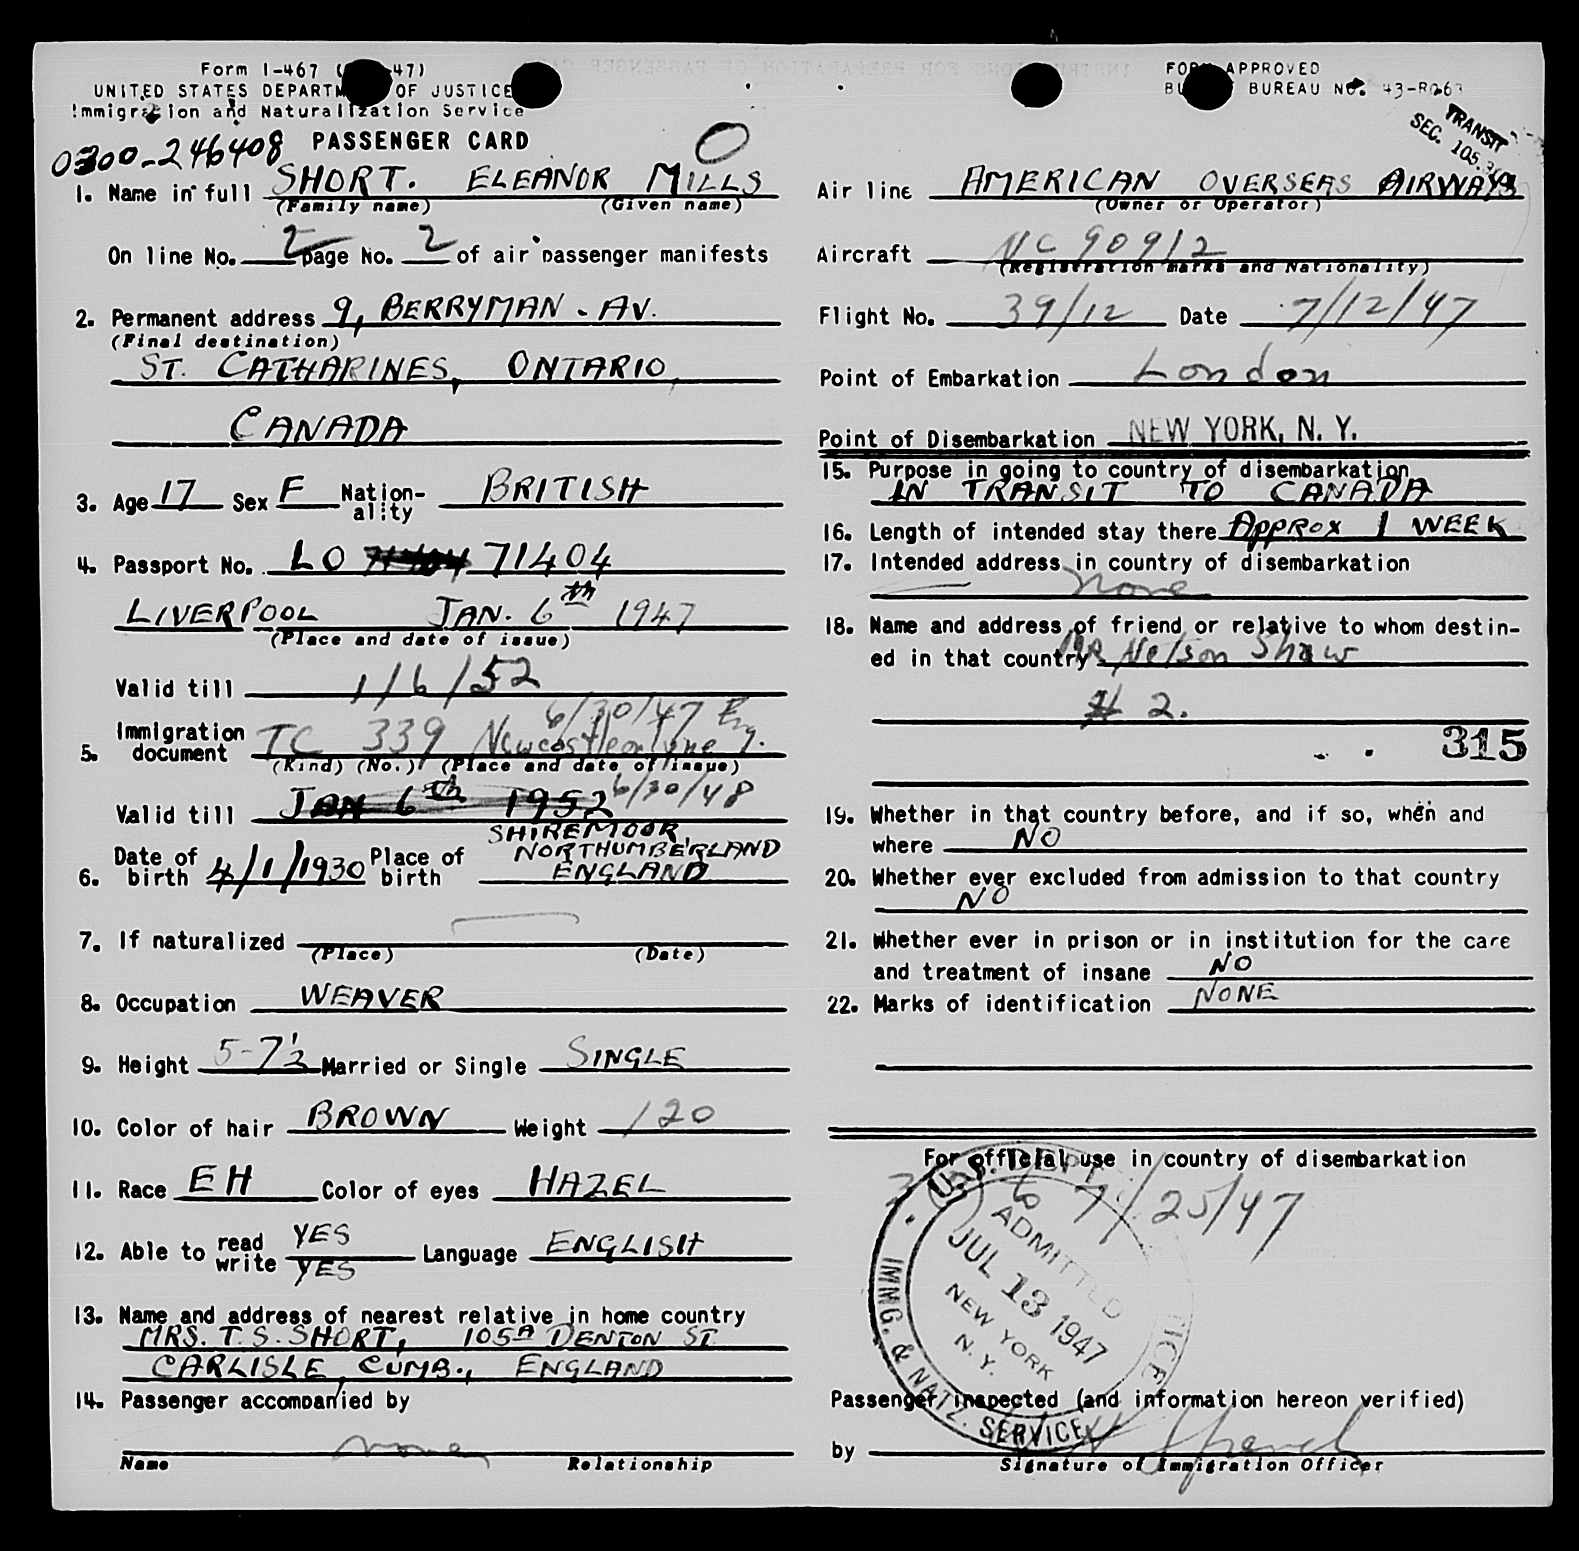 Form I-467 ( 47)
UNITED STATES DEPARTM OF JUSTICE
Immigration and Naturalization Service
0300-246408 PASSENGER CARD O
1. Name in full SHORT. ELEANOR MILLS
(Family name) (Given name)
On line No. 2 page No. 2 of air passenger manifests
2. Permanent address 9, BERRYMAN - AV.
(Final destination)
ST. CATHARINES, ONTARIO,
CANADA
3. Age 17 Sex F Nation-ality BRITISH
4. Passport No. LO 71404
LIVERPOOL JAN. 6th 1947
(Place and date of issue)
Valid till 1/6/52
5. Immigration document TC 339 Newcastle on Tyne Eng. 6/30/47
(Kind) (No.) (Place and date of issue)
Valid till JAN 6th 1952 6/30/48
6. Date of birth 4/1/1930 Place of birth SHIREMOOR, NORTHUMBERLAND ENGLAND
7. If naturalized
(Place) (Date)
8. Occupation WEAVER
9. Height 5-7½ Married or Single SINGLE
10. Color of hair BROWN Weight 120
11. Race EH Color of eyes HAZEL
12. Able to read YES write YES Language ENGLISH
13. Name and address of nearest relative in home country
MRS. T. S. SHORT, 105A DENTON ST
CARLISLE, CUMB., ENGLAND
14. Passenger accompanied by
none
Name Relationship
FORM APPROVED
BU BUREAU NO. 43-R063
TRANSIT
SEC. 105.
Air line AMERICAN OVERSEAS AIRWAYS
(Owner or Operator)
Aircraft NC 90912
(Registration marks and Nationality)
Flight No. 39/12 Date 7/12/47
Point of Embarkation London
Point of Disembarkation NEW YORK, N. Y.
15. Purpose in going to country of disembarkation
IN TRANSIT TO CANADA
16. Length of intended stay there APPROX 1 WEEK
17. Intended address in country of disembarkation
none
18. Name and address of friend or relative to whom destin-
ed in that country Mr Nelson Shaw
# 2.
315
19. Whether in that country before, and if so, when and
where NO
20. Whether ever excluded from admission to that country
NO
21. Whether ever in prison or in institution for the care
and treatment of insane NO
22. Marks of identification NONE
For official use in country of disembarkation
7/25/47
U.S. DEPT. IMMG. & NATZ. SERVICE
ADMITTED
JUL 13 1947
NEW YORK
N. Y.
Passenger inspected (and information hereon verified)
by
Signature of Immigration Officer